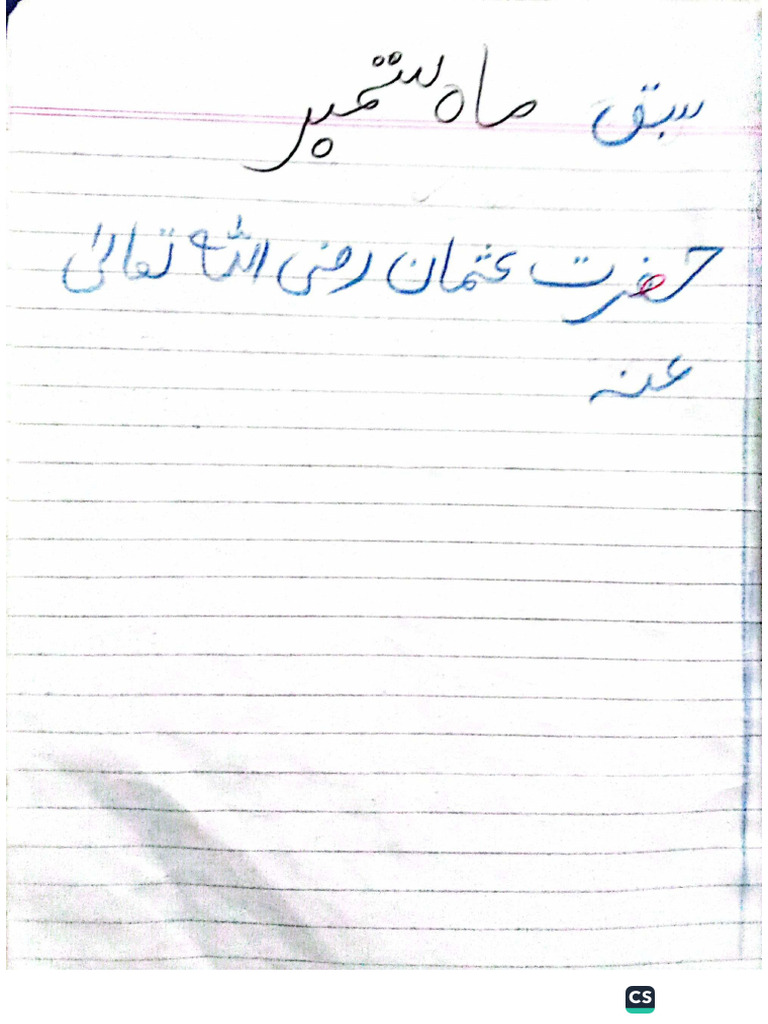 سبق ماہ ستمبر
حضرت عثمان رضی اللہ تعالیٰ
عنہ
CS